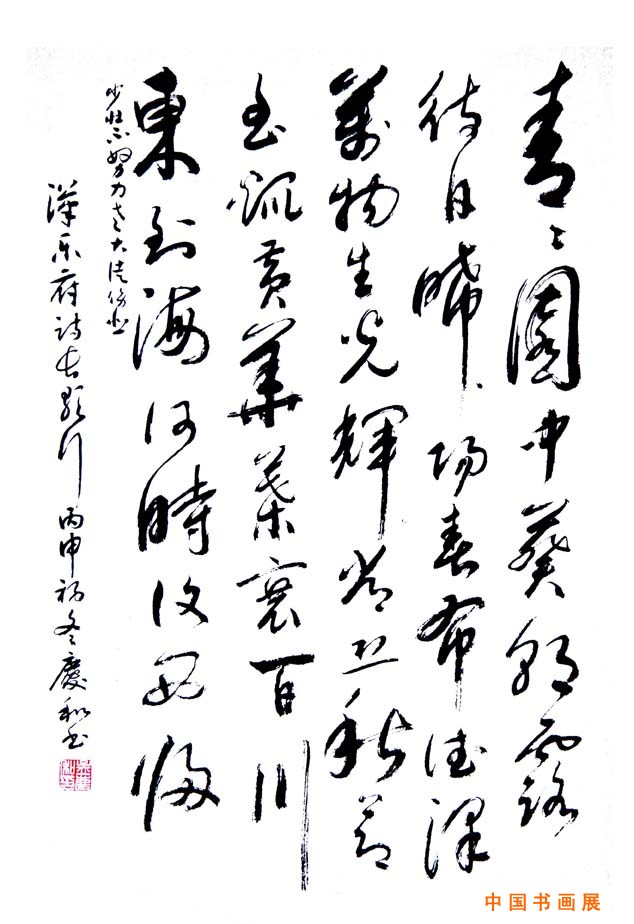 青〻園中葵朝露
待日晞陽春布德澤
萬物生光輝常恐秋節
至焜黄華葉衰百川
東到海何時復西歸
少壮不努力老大徒傷悲
漢乐府诗長歌行 丙申初冬慶和书
中国书画展